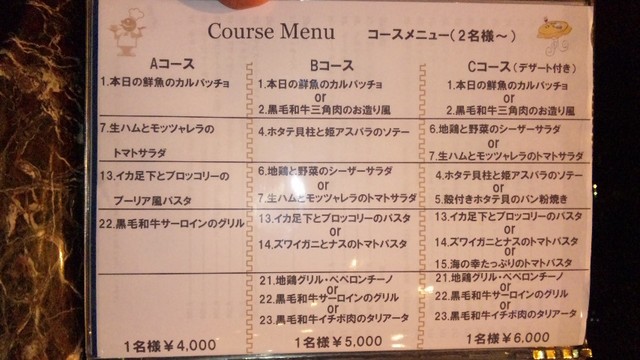 Course Menu コースメニュー(2名様~)
Aコース
1.本日の鮮魚のカルパッチョ
7.生ハムとモッツャレラの
トマトサラダ
13.イカ足下とブロッコリーの
プーリア風パスタ
22.黒毛和牛サーロインのグリル
1名様¥4,000
Bコース
1.本日の鮮魚のカルパッチョ
or
2.黒毛和牛三角肉のお造り風
4.ホタテ貝柱と姫アスパラのソテー
6.地鶏と野菜のシーザーサラダ
or
7.生ハムとモッツャレラのトマトサラダ
13.イカ足下とブロッコリーのパスタ
or
14.ズワイガニとナスのトマトパスタ
21.地鶏グリル・ペペロンチーノ
or
22.黒毛和牛サーロインのグリル
or
23.黒毛和牛イチボ肉のタリアータ
1名様¥5,000
Cコース(デザート付き)
1.本日の鮮魚のカルパッチョ
or
2.黒毛和牛三角肉のお造り風
6.地鶏と野菜のシーザーサラダ
or
7.生ハムとモッツャレラのトマトサラダ
4.ホタテ貝柱と姫アスパラのソテー
or
5.殻付きホタテ貝のパン粉焼き
13.イカ足下とブロッコリーのパスタ
or
14.ズワイガニとナスのトマトパスタ
or
15.海の幸たっぷりのトマトパスタ
21.地鶏グリル・ペペロンチーノ
or
22.黒毛和牛サーロインのグリル
or
23.黒毛和牛イチボ肉のタリアータ
1名様¥6,000